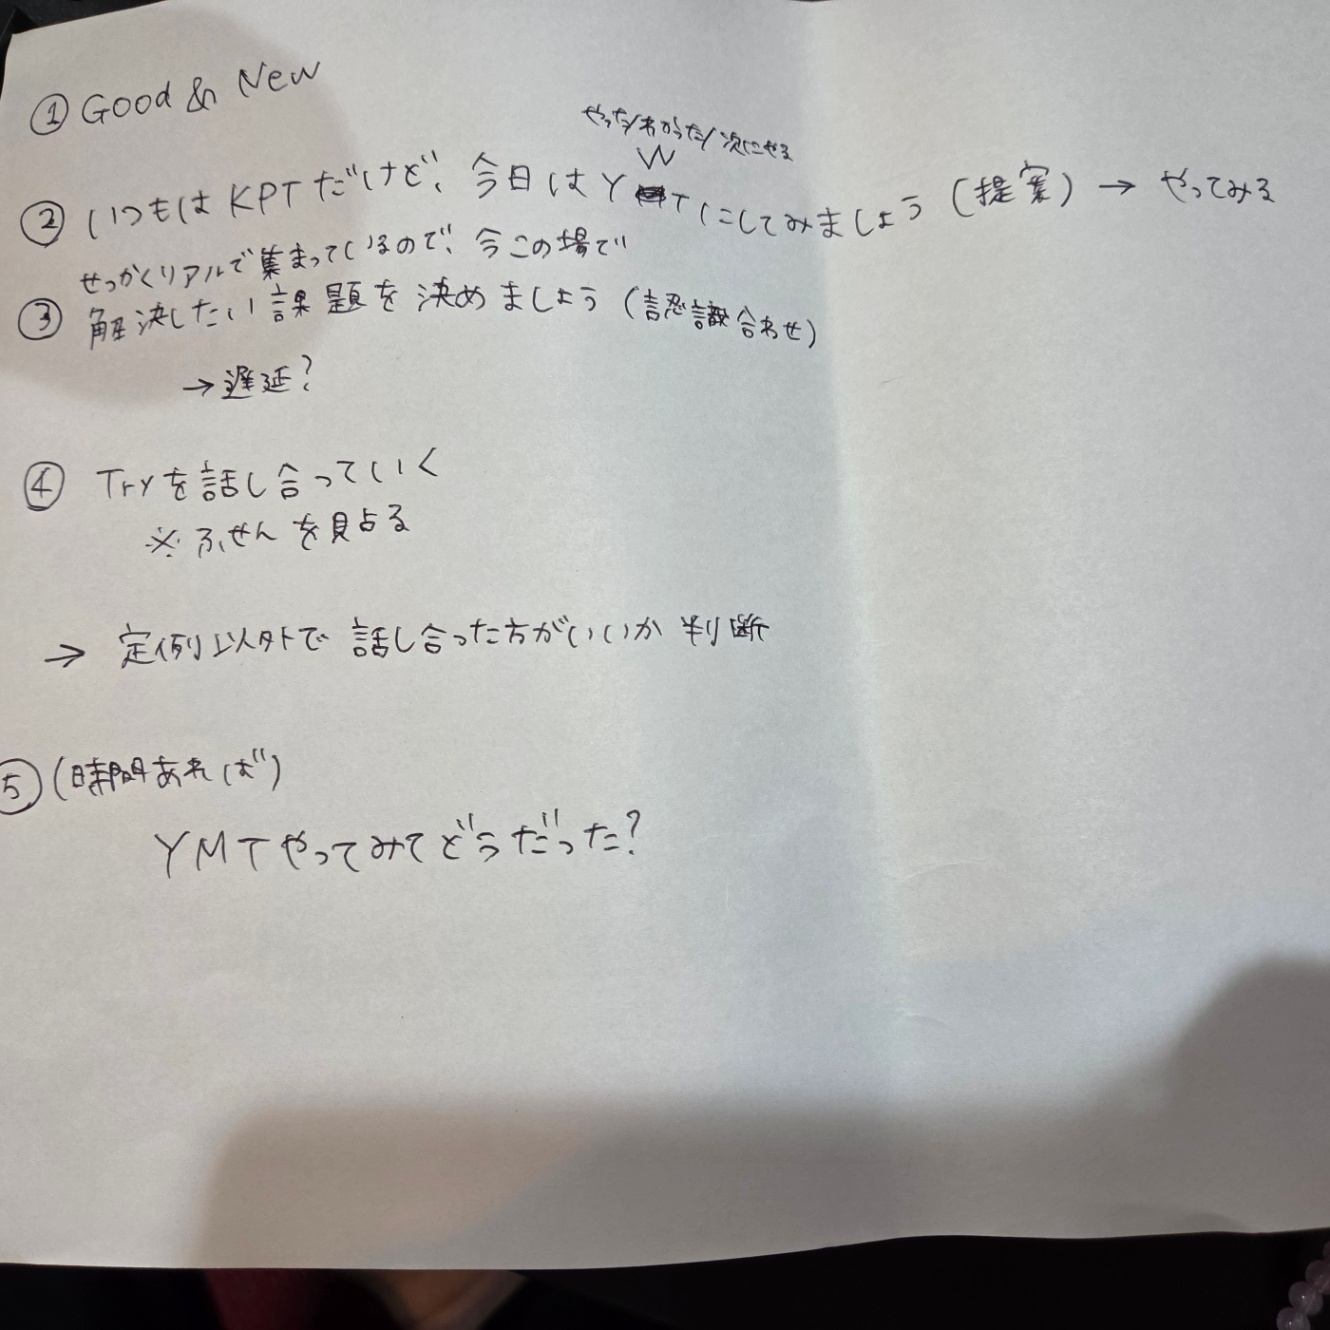 ① Good & New
やった/わかった/次にやる
② いつもはKPTだけど、今日はYWTにしてみましょう(提案) → やってみる
せっかくリアルで集まっているので、今この場で
③ 解決したい課題を決めましょう(認識合わせ)
→ 遅延?
④ Tryを話し合っていく
※ ふせんを見占る
→ 定例以外で話し合った方がいいか判断
⑤ (時間あれば)
YMTやってみてどうだった?